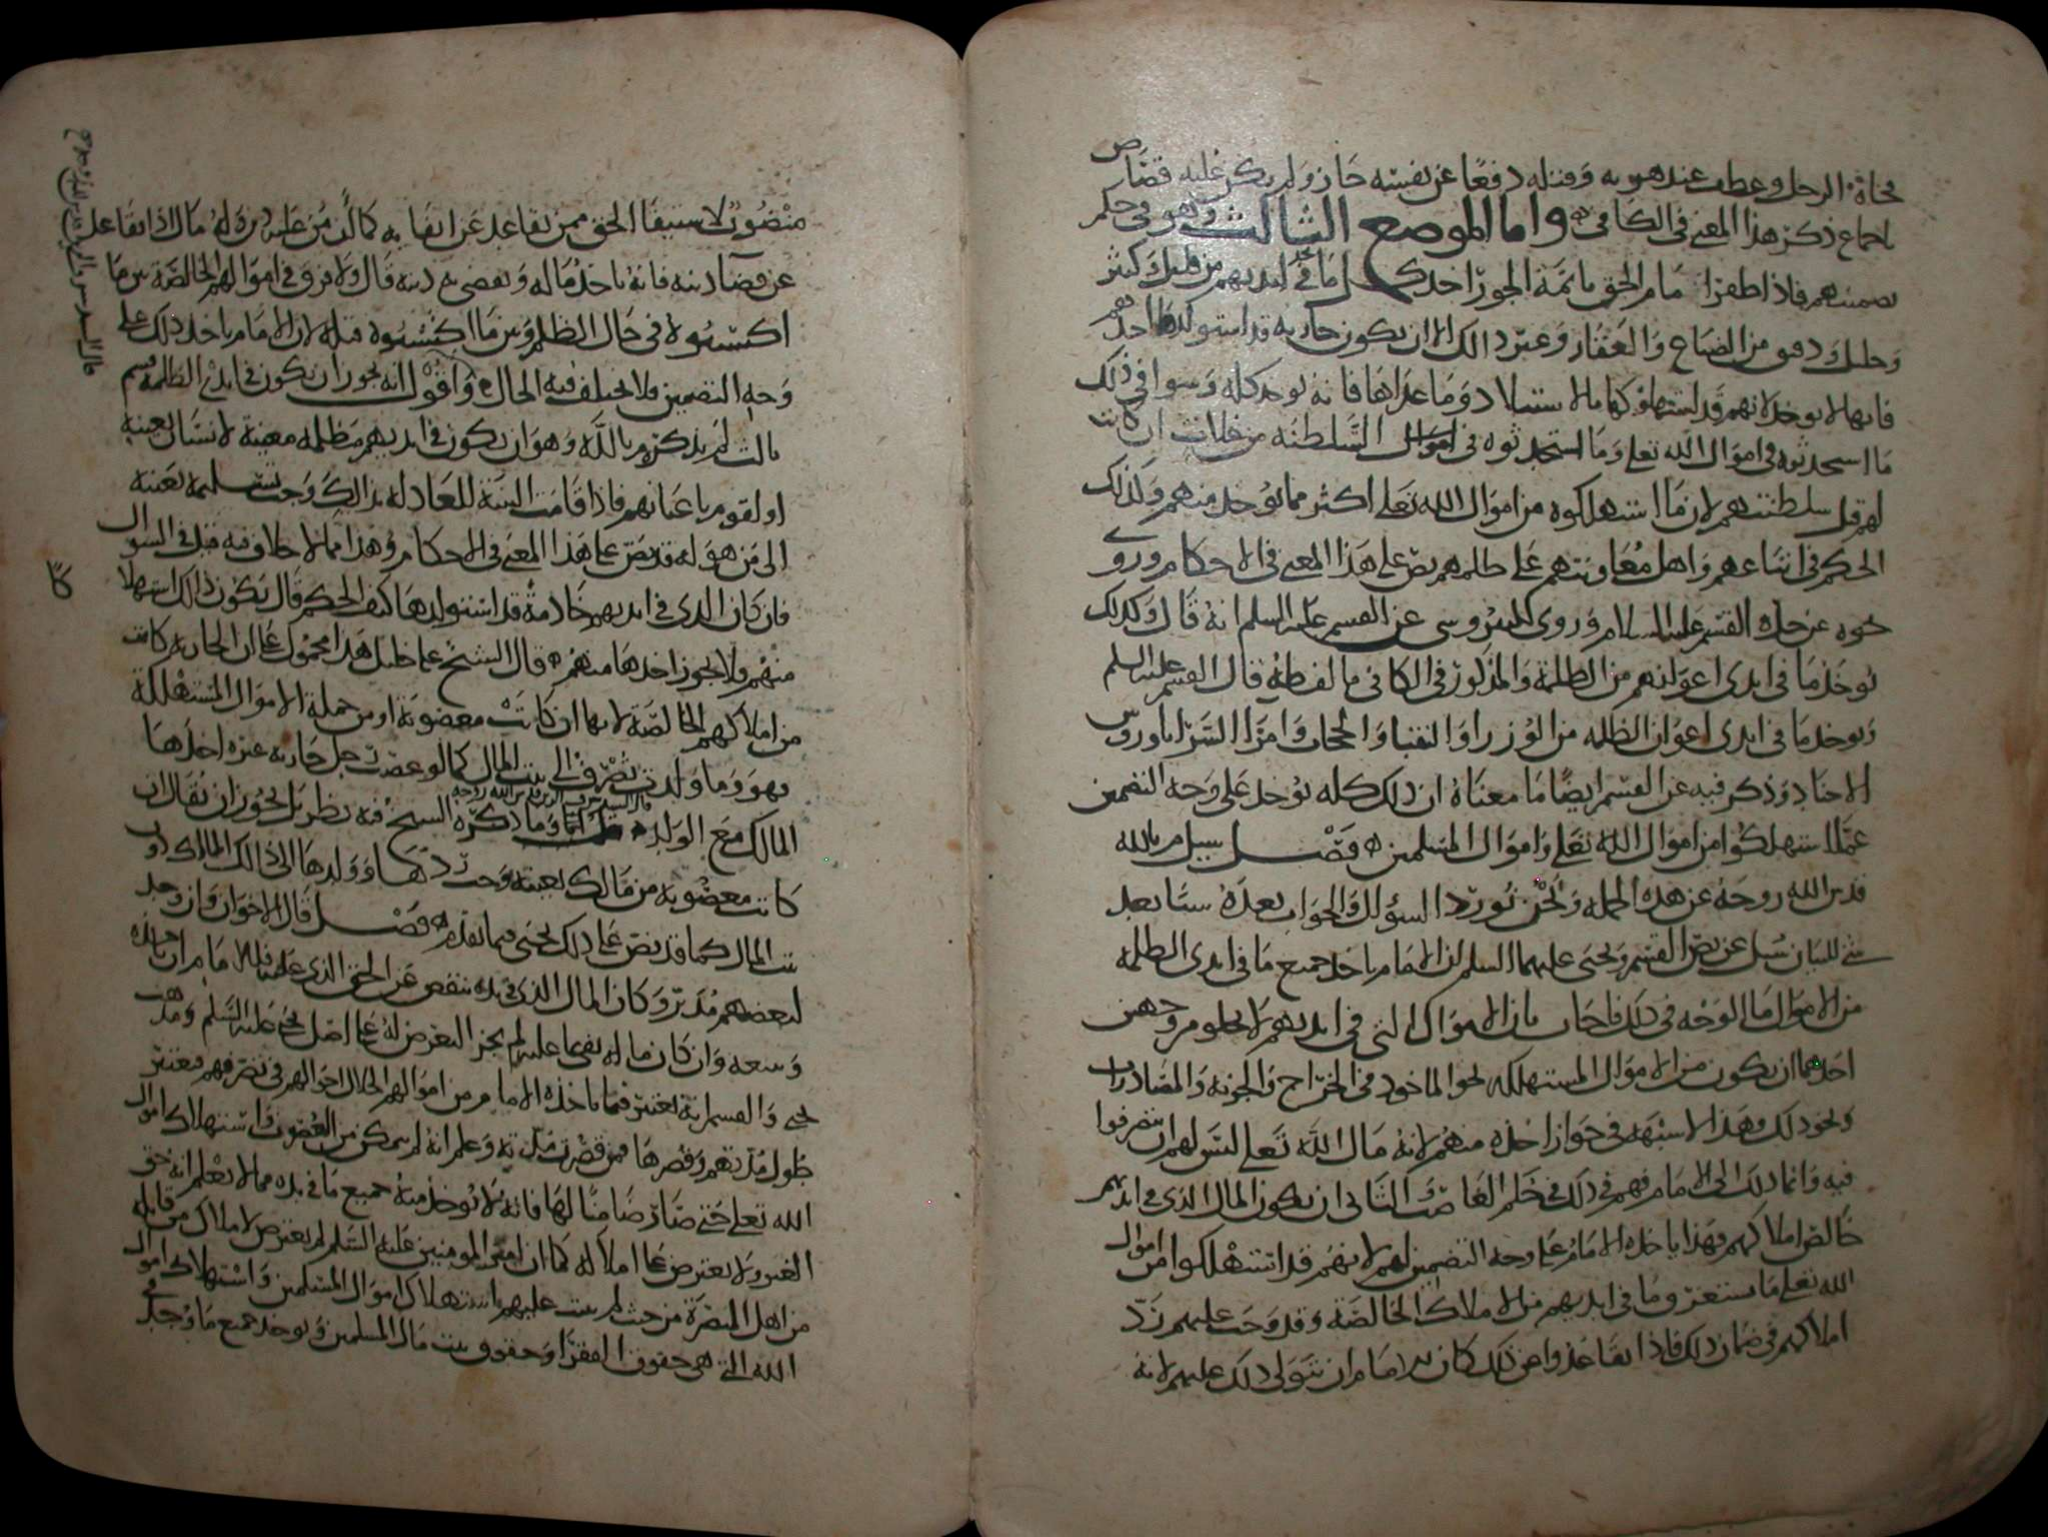 فجاءة الرجل وعطب عند هربه وقتله دفعًا عن نفسه جاز ولم يكن عليه قصاص
باجماع ذكر هذا المعنى في الكافي واما الموضع الثالث وهو في حكم
تضمينهم فاذا ظفر امام الحق بائمة الجور اخذ كل ما في ايديهم من قليل وكثير
وجليل ودقيق من الضياع والعقار وغير ذالك الا ان يكون جارية قد استولدها احدهم
فانها لا تؤخذ لانهم قد استهلكوها بالاستيلاد وما عداها فانه يوخذ كله وسوا في ذلك
ما استحدثوه في اموال الله تعلى وما استحدثوه في اموال السلطنه من غلات ان كانت
لهم قبل سلطنتهم لان ما استهلكوه من اموال الله تعلى اكثر مما يوخذ منهم وكذلك
الحكم في اتباعهم واهل معاونتهم على ظلمهم نص على هذا المعنى في الاحكام وروى
نحوه عن جده القسم عليه السلام وروى النيروسي عن القسم عليه السلم انه قال وكذلك
يوخذ ما في ايدي اعوانهم من الظلمة والمذكور في الكافي ما لفظه قال القسم عليه السلم
ويوخذ ما في ايدي اعوان الظلمه من الوزرا والنقبا والحجاب وامرا السرايا وروس
الاجناد وذكر فيه عن القسم ايضًا ما معناه ان ذلك كله يوخذ على وجه التضمين
عما استهلكوا من اموال الله تعلى واموال المسلمين فصل سيل م بالله
قدس الله روحه عن هذه الجمله ونحن نورد السؤال والجواب بعده
سئل عن نص القسم ويحيى عليهما السلم ان الامام ياخذ جميع ما في ايدي الظلمه
من الاموال ما الوجه في ذلك فاجاب بان الاموال التي في ايديهم لا يخلو من وجهين
احدهما ان يكون من الاموال المستهلكه نحو الماخوذ في الخراج والمصادرات
ونحو ذلك وهذا لا شبهة في جواز اخذه منهم لانه مال الله تعلى ليس لهم ان يتصرفوا
فيه وانما ذلك الى الامام فهم في ذلك في حكم الغاصب والثاني ان يكون المال الذي في ايديهم
خالص املاكهم فهذا ياخذه الامام على وجه التضمين لهم لانهم قد استهلكوا من اموال
الله تعلى ما يستغرق ما في ايديهم من الاملاك الخالصة وقد وجب عليهم رد
املاكهم في ضمان ذلك فاذا تقاعدوا عن ذلك كان للامام ان يتولى ذلك عليهم لانه
منصوب لاستيفا الحق ممن تقاعد عن ايفا به كما ان من عليه دين وله مال اذا تقاعد
عن قضا دينه فانه ياخذ ماله ويقضي به دينه قال ولا فرق في اموالهم الخالصة بين ما
اكتسبوه في حال الظلم وبين ما اكتسبوه قبله لان الامام ياخذ ذلك على
وجه التضمين فلا يختلف فيه الحال واقول انه يجوز ان يكون في ايدي الظلمة قسم
ثالث لم يذكره م بالله وهو ان يكون في ايديهم مظلمه معينة لانسان بعينه
او لقوم باعيانهم فاذا قامت البينة العادلة بذالك وجب تسليمه بعينه
الى من هو له قد نص على هذا المعنى في الاحكام وهذا مما لا خلاف فيه قيل في السوال
فان كان الذي في ايديهم خادمة قد استولدها كيف الحكم قال يكون ذالك استهلاكا
منهم ولا يجوز اخذها منهم قال الشيخ على خليل هذا محمول على ان الجارية كانت
من املاكهم الخالصة لانها ان كانت مغصوبة او من جملة الاموال المستهلكة
فهو وما ولدت يصرف الى بيت المال كما لو غصب رجل جارية غيره اخذها
المالك مع الولد وما ذكره الشيخ فيه نظر بل يجوز ان يقال ان
كانت مغصوبة من مالك بعينه وجب ردها وولدها الى ذالك المالك او الى
بيت المال كما قد نص على ذلك يحيى فيما تقدم فصل قال الاخوان وان وجد
لبعضهم مدبر وكان المال الذي في يده ينقص عن الحق الذي عليه فللامام ان ياخذه
وبيعه وان كان ماله يفي بما عليه لم يجز التعرض له على اصل يحيى عليه السلم ومذهب
يحيى والقسم انه يعتبر فيما ياخذه الامام من اموالهم الحلال احوالهم في تصرفهم فيعتبر
طول مدتهم وقصرها فمن قصرت مدته وعلم انه لم يتمكن من الغصوب واستهلاك اموال
الله تعلى حتى صار ضامنًا لها فانه لا يوخذ منه جميع ما في يده مما لا يعلم انه حق
الغير ولا يعترض على املاكه كما ان امير المومنين عليه السلم لم يعترض لاملاك من قابله
من اهل البصرة من حيث لم يثبت عليهم استهلاك اموال المسلمين واستهلاك اموال
الله التي هي حقوق الفقرا وحقوق بيت مال المسلمين ويوخذ جميع ما وجد في